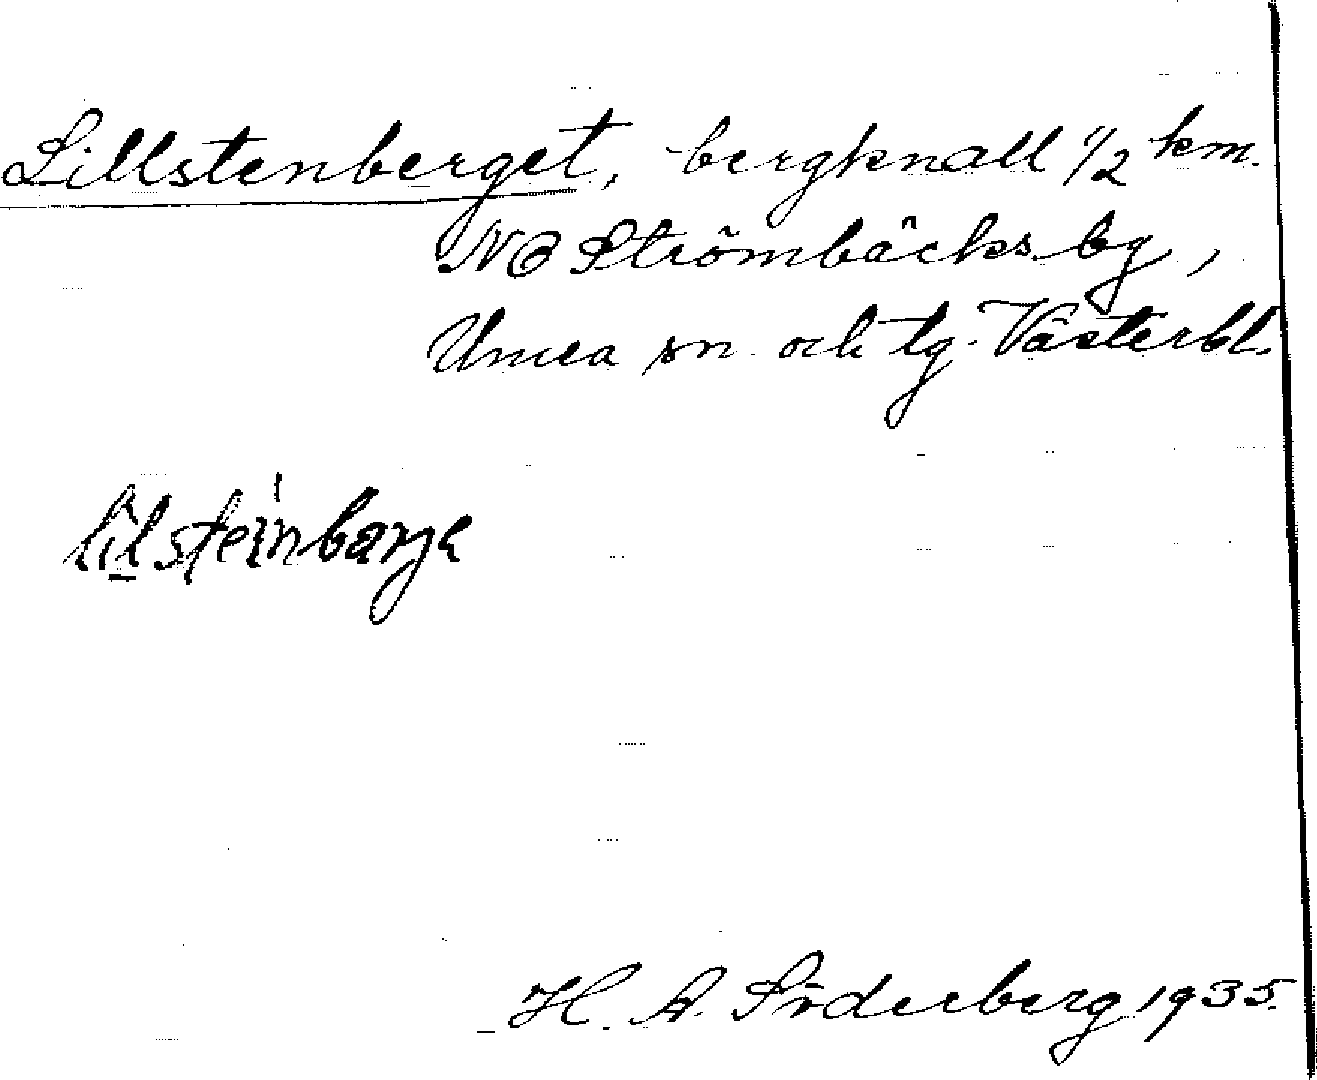 Lillstenberget, bergknall 1/2 km.
NO Strömbäcks by,
Umeå sn och tg. Västerbl.
lilsteinbarje
H. A. Söderberg 1935.